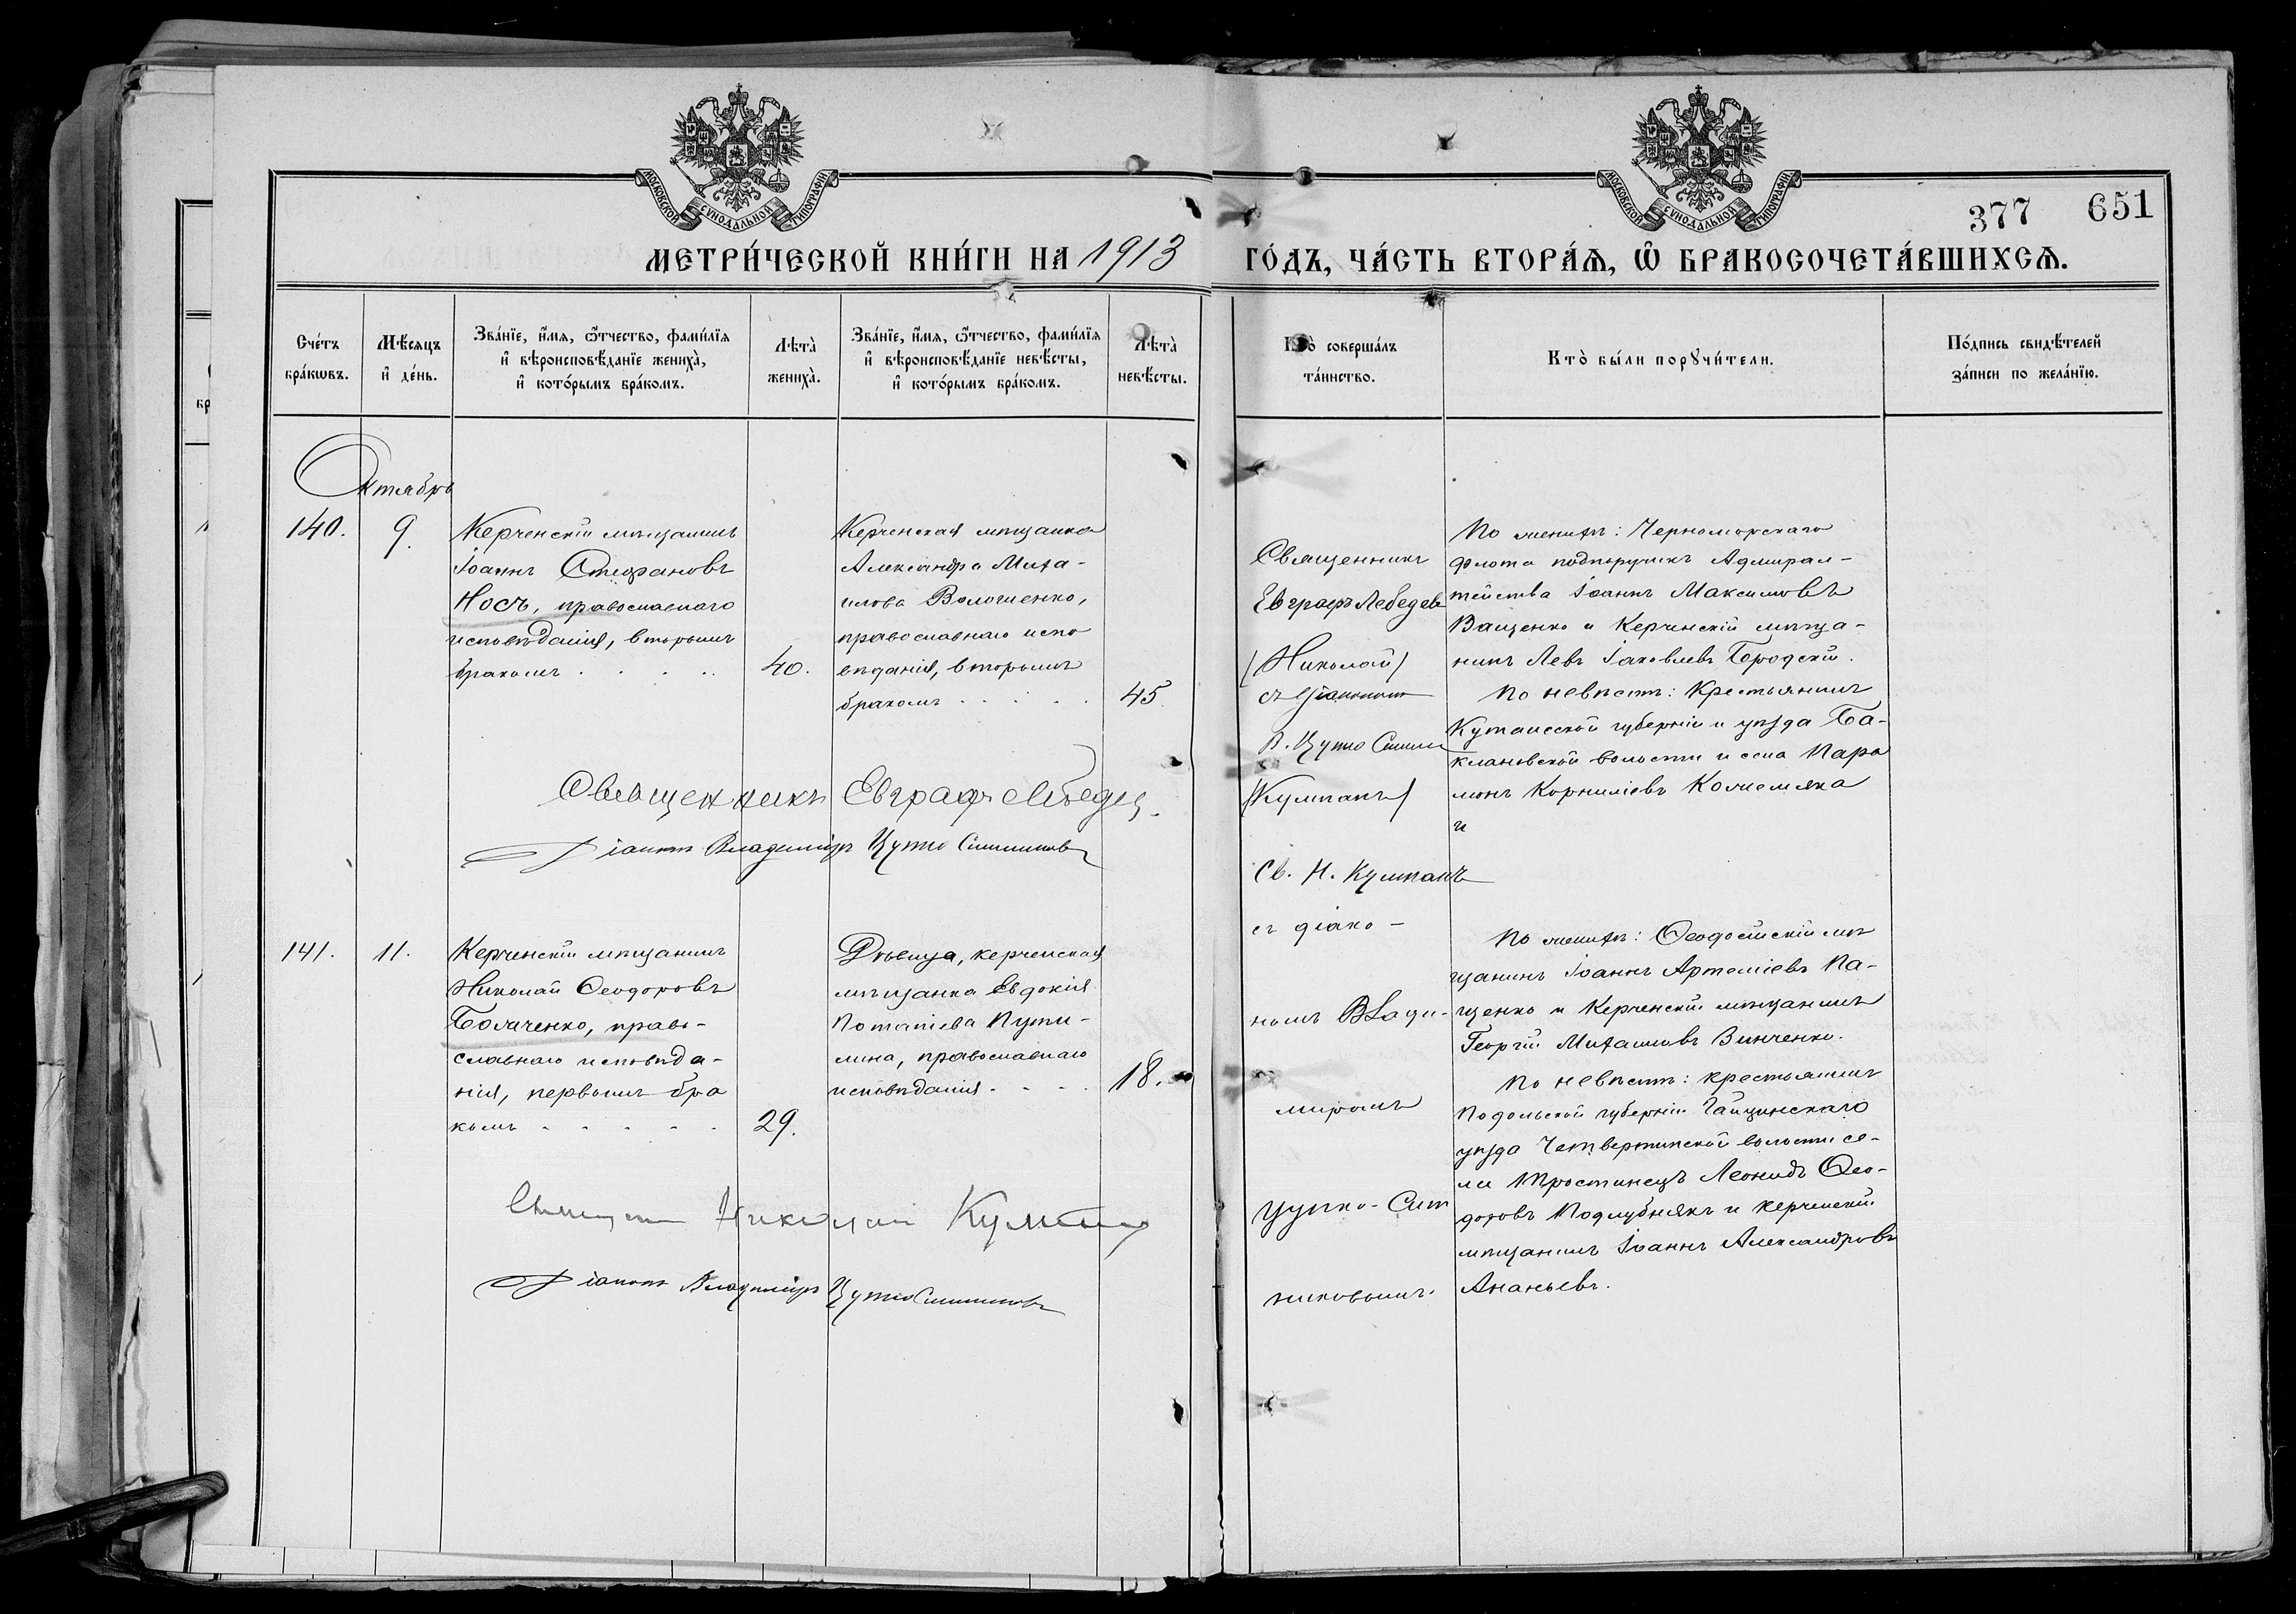 МОСКОВСКОЙ СѴНОДАЛЬНОЙ ТИПОГРАФІИ
МОСКОВСКОЙ СѴНОДАЛЬНОЙ ТИПОГРАФІИ
377 651
МЕТРИ́ЧЕСКОЙ КНИ́ГИ НА 1913 ГО́ДЪ, ЧА́СТЬ ВТОРА́Ѧ, Ѡ҆ БРАКОСОЧЕТА́ВШИХСѦ.
Сче́тъ
бра́кωвъ.
Мѣ́сяцъ
и҆ де́нь.
Зва́нїе, и҆́мя, ѻ҆́тчество, фами́лїя
и҆ вѣроисповѣ́данїе жениха̀,
и҆ кото́рымъ бра́комъ.
Лѣта̀
жениха̀.
Зва́нїе, и҆́мя, ѻ҆́тчество, фами́лїя
и҆ вѣроисповѣ́данїе невѣ́сты,
и҆ кото́рымъ бра́комъ.
Лѣта̀
невѣ́сты.
Кто̀ соверша́лъ
та́инство.
Кто̀ бы́ли порꙋчи́тели.
По́дпись свидѣ́телей
за́писи по жела́нїю.
Октябрь
140.
9.
Керченскій мѣщанинъ
Іоаннъ Стефановъ
Носъ, православнаго
исповѣданія, вторымъ
бракомъ . . . . .
40.
Керченская мѣщанка
Александра Миха-
илова Волошенко,
православнаго испо
вѣданія, вторымъ
бракомъ . . . . .
45.
Священникъ
Евграфъ Лебедевъ
(Николай)
съ діакономъ
В. Цупко Ситни
(Кумпанъ)
По женихѣ: Черноморскаго
флота подпоручикъ Адмирал-
тейства Іоаннъ Максимовъ
Ващенко и Керченскій мѣща-
нинъ Левъ Іаковлевъ Бродскій.
По невѣстѣ: Крестьянинъ
Кутаисской губерніи и уѣзда Ба-
клановской волости и села Пара
монъ Корниліевъ Кожемяка
и
Священникъ Евграфъ Лебедев.
Діаконъ Владиміръ Цупко Ситников
141.
11.
Керченскій мѣщанинъ
Николай Ѳеодоровъ
Божченко, право-
славнаго исповѣда-
нія, первымъ бра
комъ . . . . .
29.
Дѣвица, керченская
мѣщанка Евдокія
Потапіева Пути-
лина, православнаго
исповѣданія . . . .
18.
Св. Н. Кумпанъ
съ діако-
номъ Влади-
миромъ
Цупко-Сит
никовымъ.
По женихѣ: Ѳеодосійскій мѣ
щанинъ Іоаннъ Артеміевъ Па-
щенко и Керченскій мѣщанинъ
Георгій Михаиловъ Винченко.
По невѣстѣ: крестьянинъ
Подольской губерніи Гайсинскаго
уѣзда Четвертинской волости се-
ла Тростинецъ Леонидъ Ѳео-
доровъ Поддубнякъ и керченскій
мѣщанинъ Іоаннъ Александровъ
Ананьевъ.
Священникъ Николай Кумпанъ
Діаконъ Владиміръ Цупко Ситниковъ